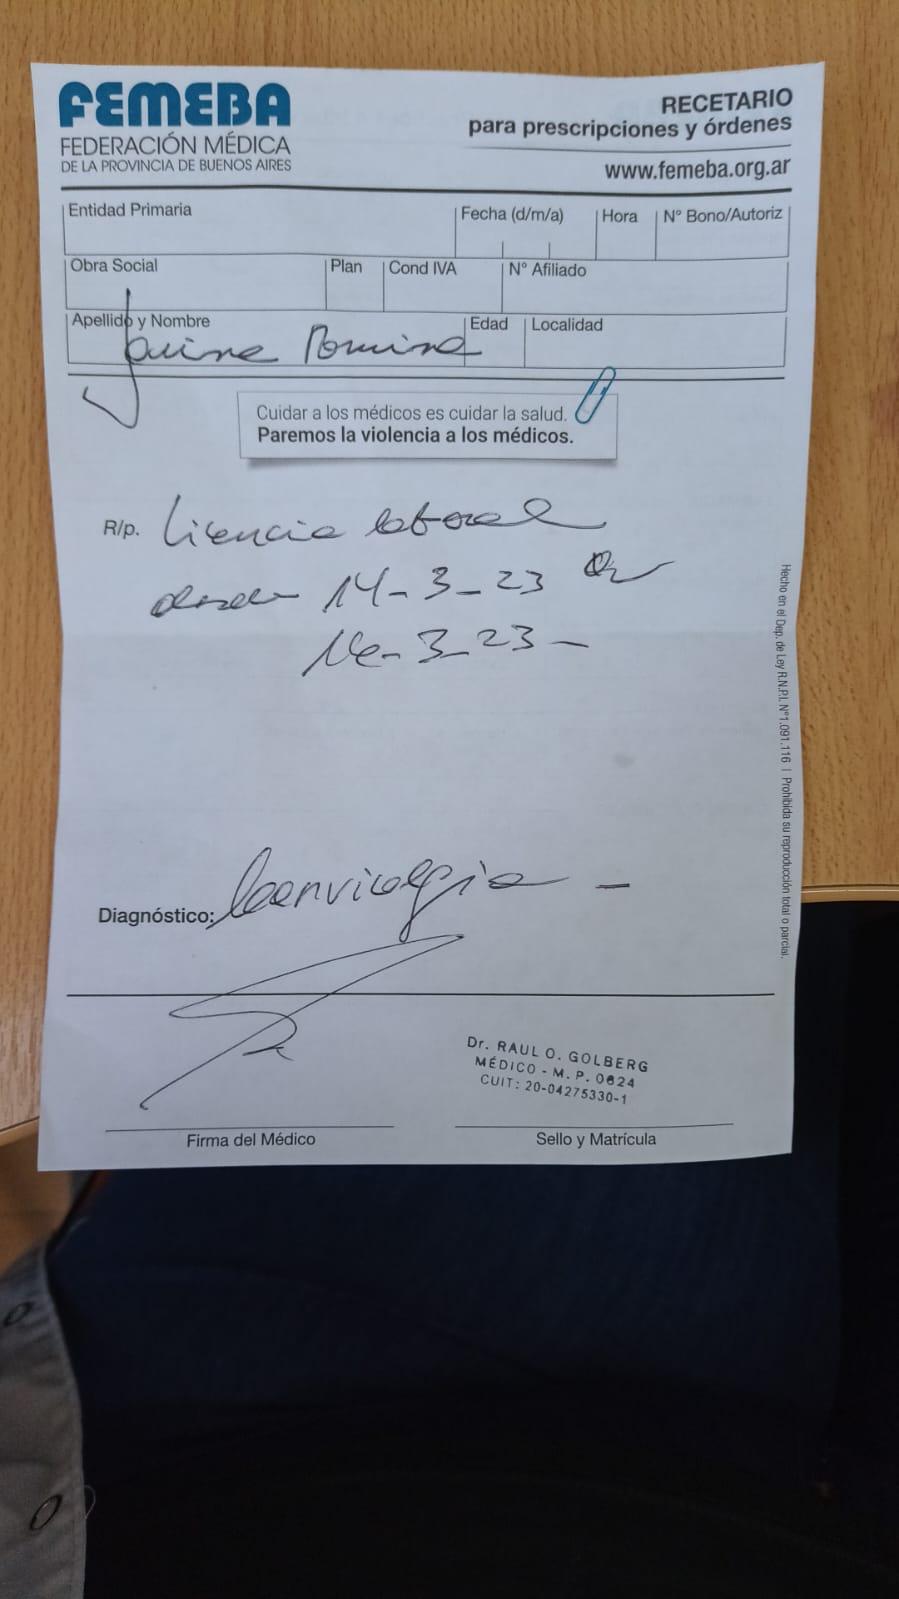 FEMEBA
FEDERACIÓN MÉDICA
DE LA PROVINCIA DE BUENOS AIRES
RECETARIO
para prescripciones y órdenes
www.femeba.org.ar
Entidad Primaria
Fecha (d/m/a)
Hora
N° Bono/Autoriz
Obra Social
Plan
Cond IVA
N° Afiliado
Apellido y Nombre
Edad
Localidad
Jaime Romina
Cuidar a los médicos es cuidar la salud.
Paremos la violencia a los médicos.
R/p. Licencia laboral
desde 14-3-23
-3-23-
Diagnóstico:
Dr. RAUL O. GOLBERG
MÉDICO - M. P. 0624
CUIT: 20-04275330-1
Firma del Médico
Sello y Matrícula
Hecho en el Dep. de Ley R.N.P.I. N°1.091.116 | Prohibida su reproducción total o parcial.